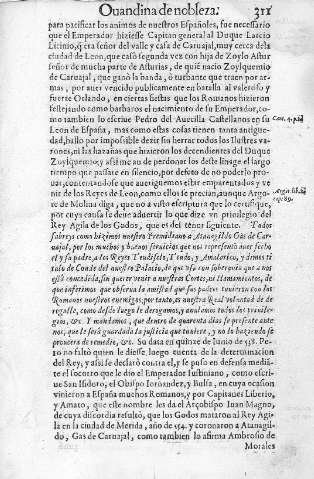 Quandina de nobleza. 311
para pacificar los animos de nuestros Españoles, fue necessario
que el Emperador hiziesse Capitan general al Duque Lascio
Licinio, q̃ era señor del valle y casa de Caruajal, muy cerca dela
ciudad de Leon, que casò segunda vez con hija de Zoylo Astur
señor de mucha parte de Asturias, de quiẽ nacio Zoylquemio
de Caruajal, que ganò la banda, ò turbante que traen por ar-
mas, por auer vencido publicamente en batalla al valeroso y
fuerte Orlando, en ciertas fiestas que los Romanos hizieron
festejando como barbaros el nacimiento de su Emperador, co-
mo tambien lo escriue Pedro del Aucilla Castellanos en su
Leon de España, mas como estas cosas tienen tanta antigue-
dad, hallo por impossible dezir sin herrar todos los Ilustres varo-
nes, ni las hazañas que hizieron los decendientes del Duque
Zoylquemio; y assi me au de perdonar los deste linage el largo
tiempo que passare en silencio, por defeto de no poderlo pro-
uar, contentãdose que aueriguemos estar emparentados y ve-
nir de los Reyes de Leon, como ellos se precian, aunque Argo-
te de Molina diga, que no a visto escriptura que lo certifique,
por cuya causa se deue aduertir lo que dize vn priuilegio del
Rey Agila de los Godos, que es del tenor siguiente. Todos
sabreys como hizimos nuestro a Atanagildo Gas de Car-
uajal, por los muchos y buenos seruicios que nos representò auer fecho
el y su padre, a los Reyes Teudiselo, Teudo, y Amalarico, y dimos ti
tulo de Conde del nuestro Palacio, lo que vsa con soberuia que a nos
està concedida, sin querer venir a nuestras Cortes, ni llamamientos, de
que inferimos que obserua la amistad que sus padres tuuieron con los
Romanos nuestros enemigos; por tanto, es nuestra Real voluntad de de
regallo, como desde luego le derogamos, y anulamos todos los priuile-
gios, &c. Y mandamos, que dentro de quarenta dias se presente ante
nos, que le serà guardada la justicia que tuuiere, y no lo haziendo se
procurarà de remedio, &c. Su data en quinze de Iunio de 558. Pe-
ro no faltò quien le diesse luego cuenta de la determinacion
del Rey, y assi se declarò contra el, y se puso en defensa median-
te el socorro que le dio el Emperador Iustiniano, como escri-
ue San Isidoro, el Obispo Iornandez, y Bulsa, en cuya ocasion
vinieron a España muchos Romanos, y por Capitanes Liberio,
y Amato, que este nombre les da el Arçobispo Iuan Magno,
de cuya discordia resultò, que los Godos mataron al Rey Agi-
la en la ciudad de Merida, año de 554. y coronaron a Atanagil-
do, Gas de Caruajal, como tambien lo afirma Ambrosio de
Morales